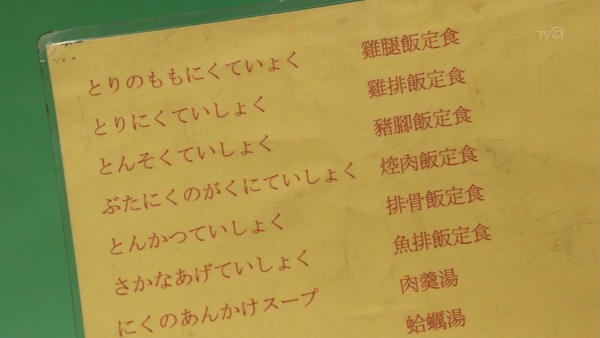 とりのももにくていょく 雞腿飯定食
とりにくていしょく 雞排飯定食
とんそくていしょく 豬腳飯定食
ぶたにくのがくにていしょく 焢肉飯定食
とんかつていしょく 排骨飯定食
さかなあげていしょく 魚排飯定食
にくのあんかけスープ 肉羹湯
蛤蠣湯